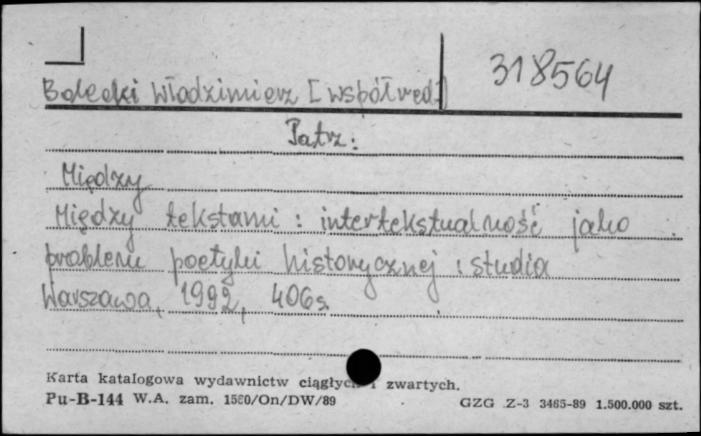 318564
Bolecki Włodzimierz [współred.]
Patrz:
Między
Między tekstami : intertekstualność jako
problem poetyki historycznej : studia
Warszawa, 1992, 406s.
Karta katalogowa wydawnictw ciągłych i zwartych.
Pu-B-144 W.A. zam. 1580/On/DW/89 GZG Z-3 3465-89 1.500.000 szt.